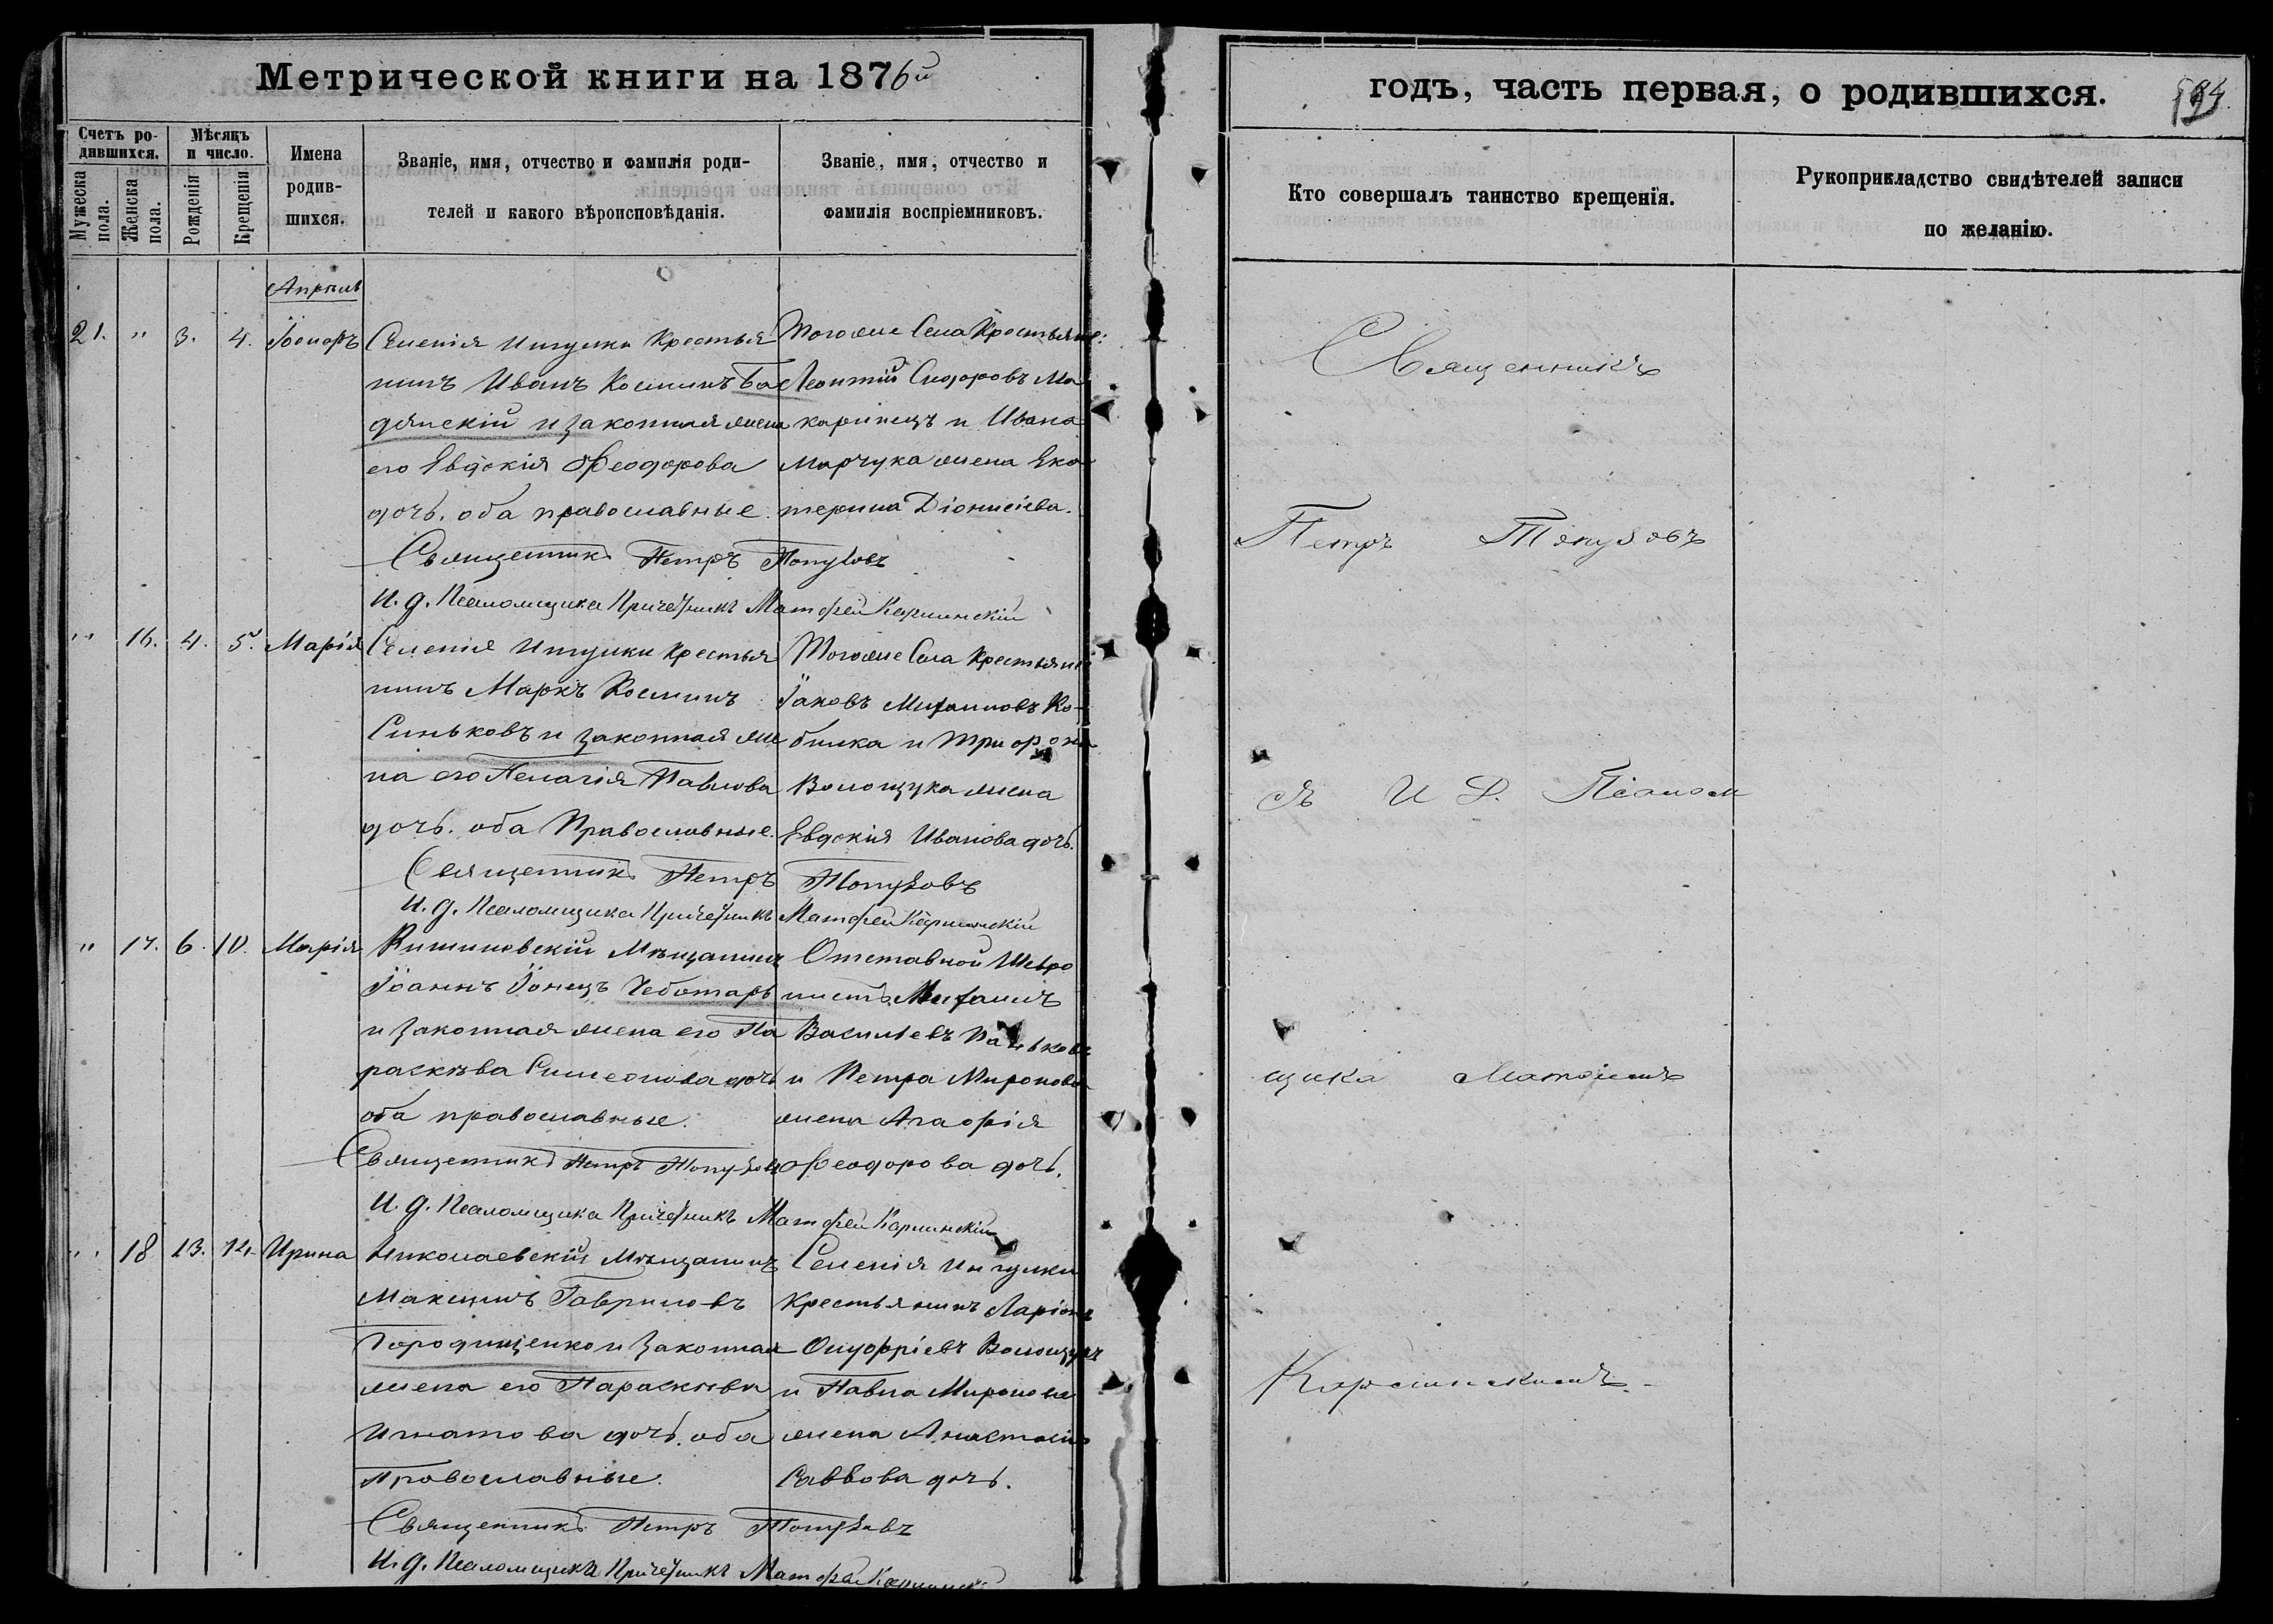 Метрической книги на 1876й
годъ, часть первая, о родившихся.
Счетъ ро-
дившихся.
Мужеска пола.
Женска пола.
Мѣсяцъ
и число.
Рожденія
Крещенія
Имена
родив-
шихся.
Званіе, имя, отчество и фамилія роди-
телей и какого вѣроисповѣданія.
Званіе, имя, отчество и
фамилія воспріемниковъ.
Кто совершалъ таинство крещенія.
Рукоприкладство свидѣтелей записи
по желанію.
Апрѣль
21. " 3. 4.
Селенія Ингулки крестья
нинъ Иванъ Косминъ Ба
дянскій и законная жена
его Евдокія Ѳеодорова
дочь. оба православные.
Тогоже Села Крестьяне:
Леонтій Сидоровъ Ма
каринецъ и Ивана
Марчука жена Ека
терина Діонисіева.
Священникъ Петръ
И. д. Псаломщика Причетникъ Матфей
" 16. 4. 5. Марія
Селенія Ингулки крестья
нинъ Маркъ Косминъ
Синьковъ и законная же
на его Пелагія Павлова
дочь. оба Православные.
Тогоже Села крестьяне
Іаковъ Михаиловъ Ко-
билка и Трифона
Волощука жена
Евдокія Иванова дочь.
Священникъ Петръ
И. д. Псаломщика Причетникъ Матфей
" 17. 6. 10. Марія
Кишиневскій Мѣщанинъ
Іоаннъ Іонецъ Чеботарь
и законная жена его Па
раскѣва Симеонова дочь
оба православные.
Отставной
Михаилъ
Васильевъ
и Петра Миронова
жена Агафія
Ѳеодорова дочь.
Священникъ Петръ
И. д. Псаломщика Причетникъ Матфей
" 18 13. 14. Ирина
Николаевскій Мѣщанинъ
Максимъ Гавриловъ
Городищенко и законная
жена его Параскѣва
Игнатова дочь. оба
православные.
Селенія Ингулки
крестьянинъ Ларіонъ
Онуфріевъ Волощукъ
и Павла Миронова
жена Анастасія
Саввова дочь.
Священникъ Петръ
И. д. Псаломщика Причетникъ Матфей
Священникъ
Петръ
съ И Д. Псалом
щика